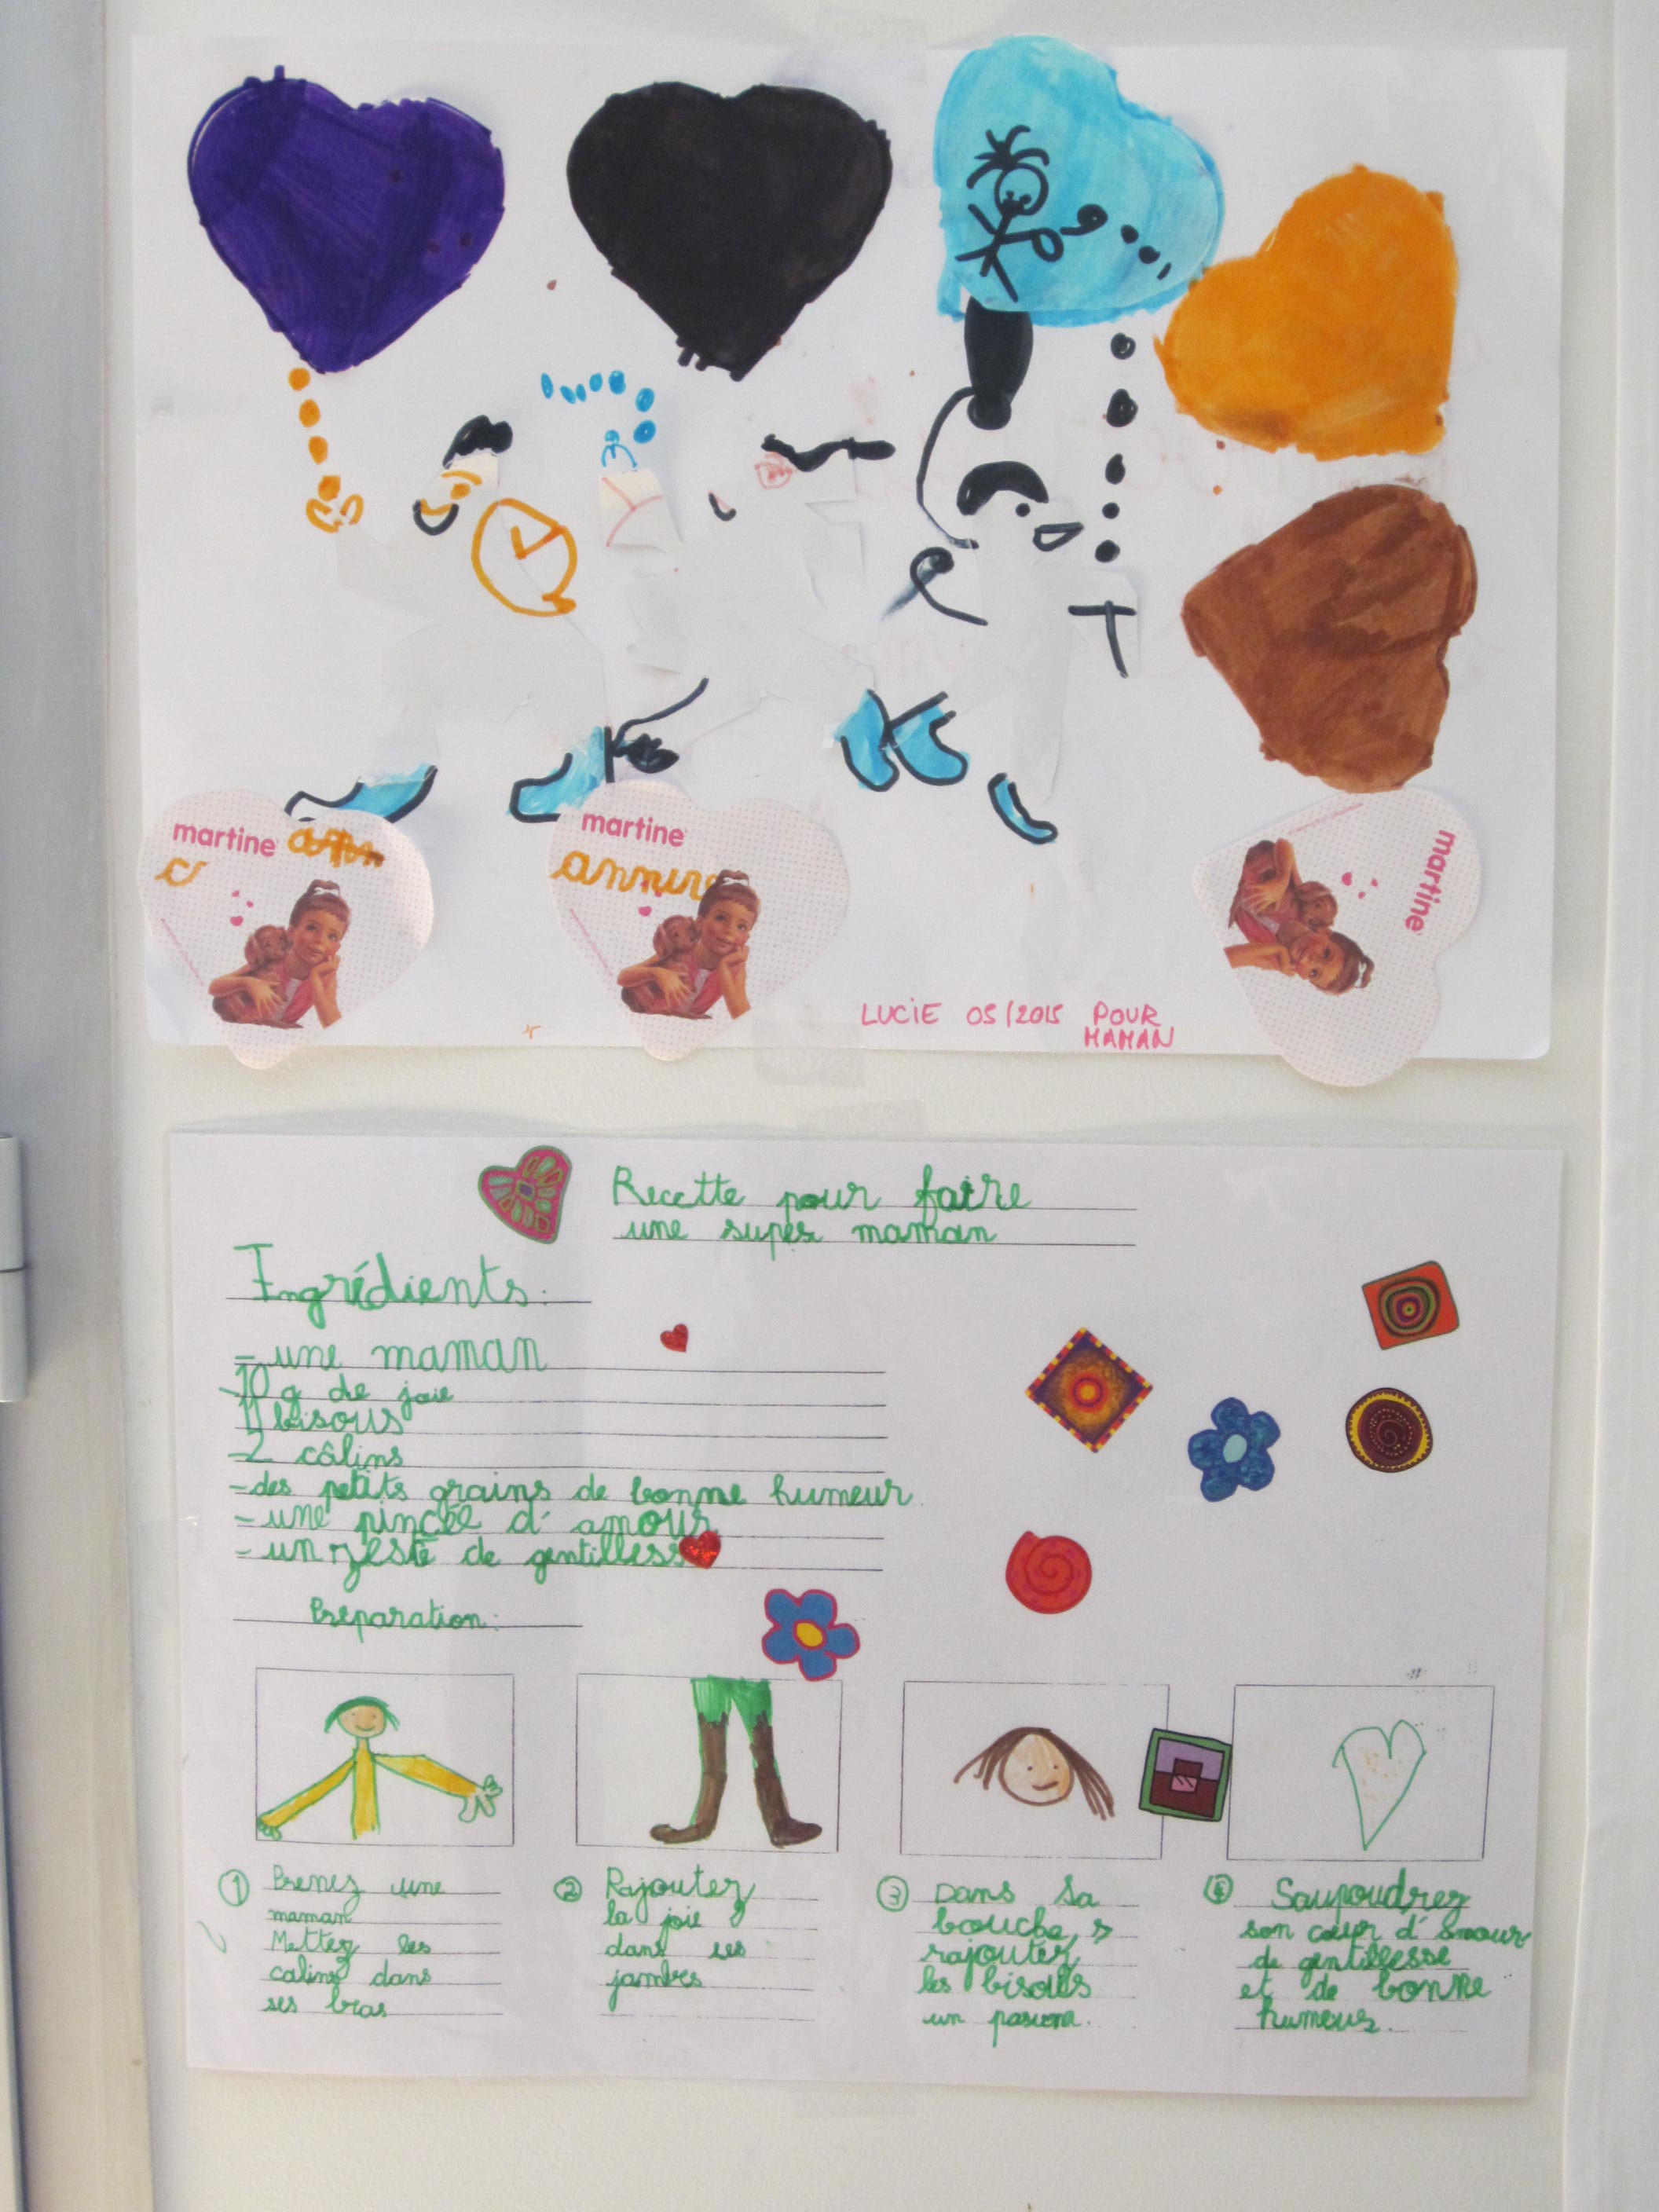 martine
martine
annire
martine
LUCIE 05/2015 POUR
MAMAN
Recette pour faire
une super maman
Ingrédients:
- une maman
- 10 g de joie
11 bisous
- 2 câlins
- des petits grains de bonne humeur.
- une pincée d'amour
- un zeste de gentilless
Préparation:
1 Prenez une
maman
Mettez les
calins dans
ses bras
2 Rajoutez
la joie
dans ses
jambes
3 Dans sa
bouche,
rajoutez
les bisous
un par
4 Saupoudrez
son cœur d'amour
de gentillesse
et de bonne
humeur.